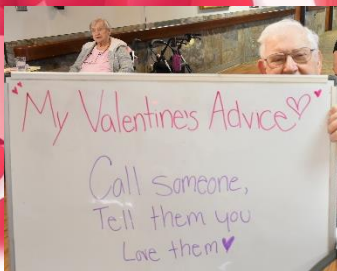 "My Valentine's Advice"
Call someone,
Tell them you
Love them